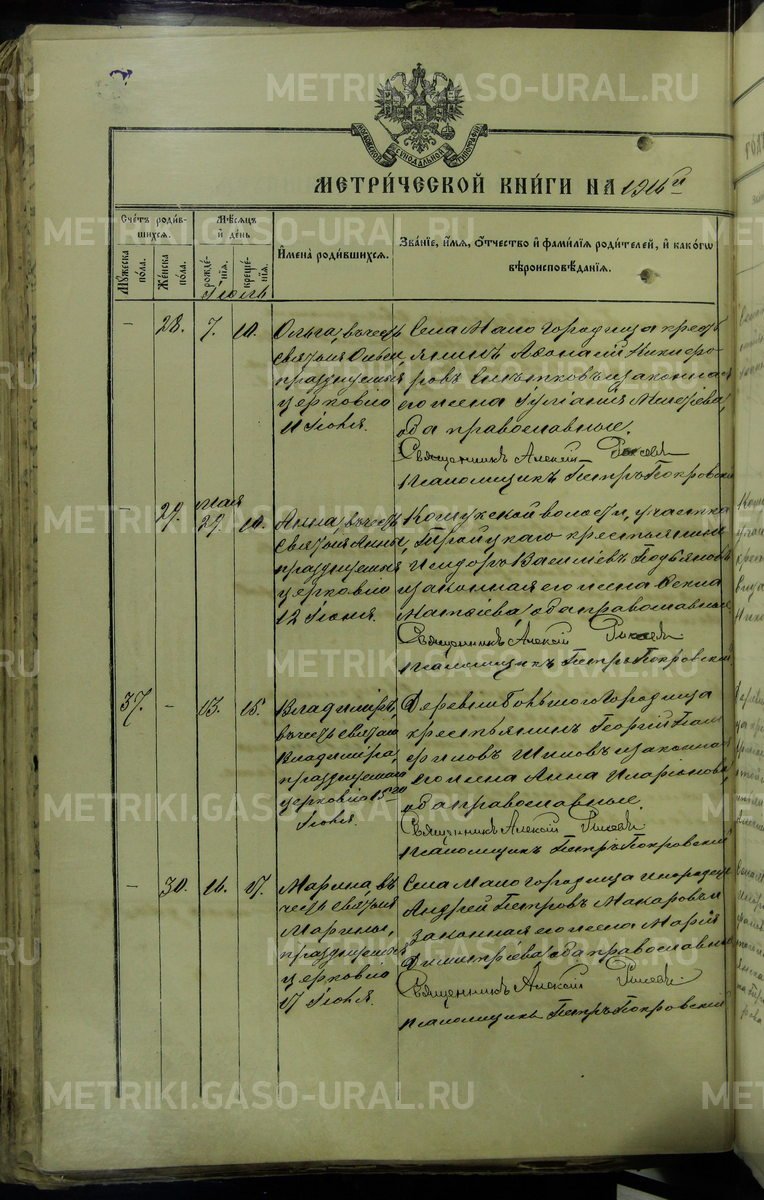 METRIKI.GASO-URAL.RU
МОСКОВСКОЙ СѴНОДАЛЬНОЙ ТИПОГРАФІИ
МЕТРИ́ЧЕСКОЙ КНИ́ГИ НА 1916 й
Сче́тъ роди́в-
шихся.
Мѣ́сяцъ
и҆ де́нь
Мꙋ́жеска по́ла.
Же́нска по́ла.
рожде́-
нїѧ.
креще́-
нїѧ.
И҆мена̀ роди́вшихся.
Зва́нїе, и҆́мѧ, ѻ҆́тчество и҆ фами́лїѧ роди́телей, и҆ како́гѡ
вѣроисповѣ́данїѧ.
Іюль
– 28. 7. 10.
Ольга, въ честь
святыя Ольги,
празднуемыя
церковію
11 Іюля.
Села Мало Городища крест
янинъ Афанасій Никифо
ровъ и законная
его жена Іуліанія
оба православные.
Священникъ Алексій
Псаломщикъ Петръ Покровскій
Мая
– 29. 29. 10.
Анна, въ честь
святыя Анны,
празднуемыя
церковію
12 Іюня.
Кошукской волости, участка
Троицкаго крестьянинъ
Исидоръ Василіевъ
и законная его жена Фекла
Матѳіева, оба православные
Священникъ Алексій
Псаломщикъ Петръ Покровскій
37. – 13. 15.
Владиміръ,
въ честь святаго
Владиміра,
празднуемаго
церковію 15 го
Іюля.
Деревни Большого Городища
крестьянинъ Георгій
филовъ Шиловъ и законная
его жена Анна Иларіонова,
оба православные.
Священникъ Алексій
Псаломщикъ Петръ Покровскій
– 30. 16. 17.
Марина, въ
честь святыя
Марины,
празднуемыя
церковію
17 Іюля.
Села Мало Городища инородецъ
Андрей Петровъ Макаровъ и
законная его жена Марія
Димитріева, оба православные
Священникъ Алексій
Псаломщикъ Петръ Покровскій
METRIKI.GASO-URAL.RU